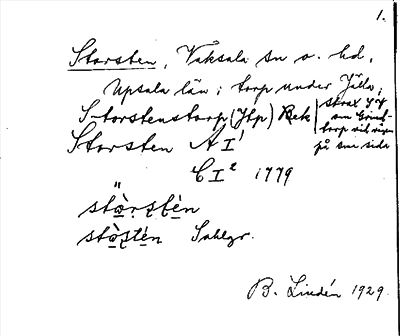 1.
Storsten, Vaksala sn o. hd,
Upsala län; torp under Jälla,
Storstenstorp (Jtp) Rek strax SV om Grind-torp vid vägen på sne sida
Storsten A I¹
C I² 1779
stò̤rste̤n
stò̤ste̤n Sahlgr.
B. Lindén 1929.